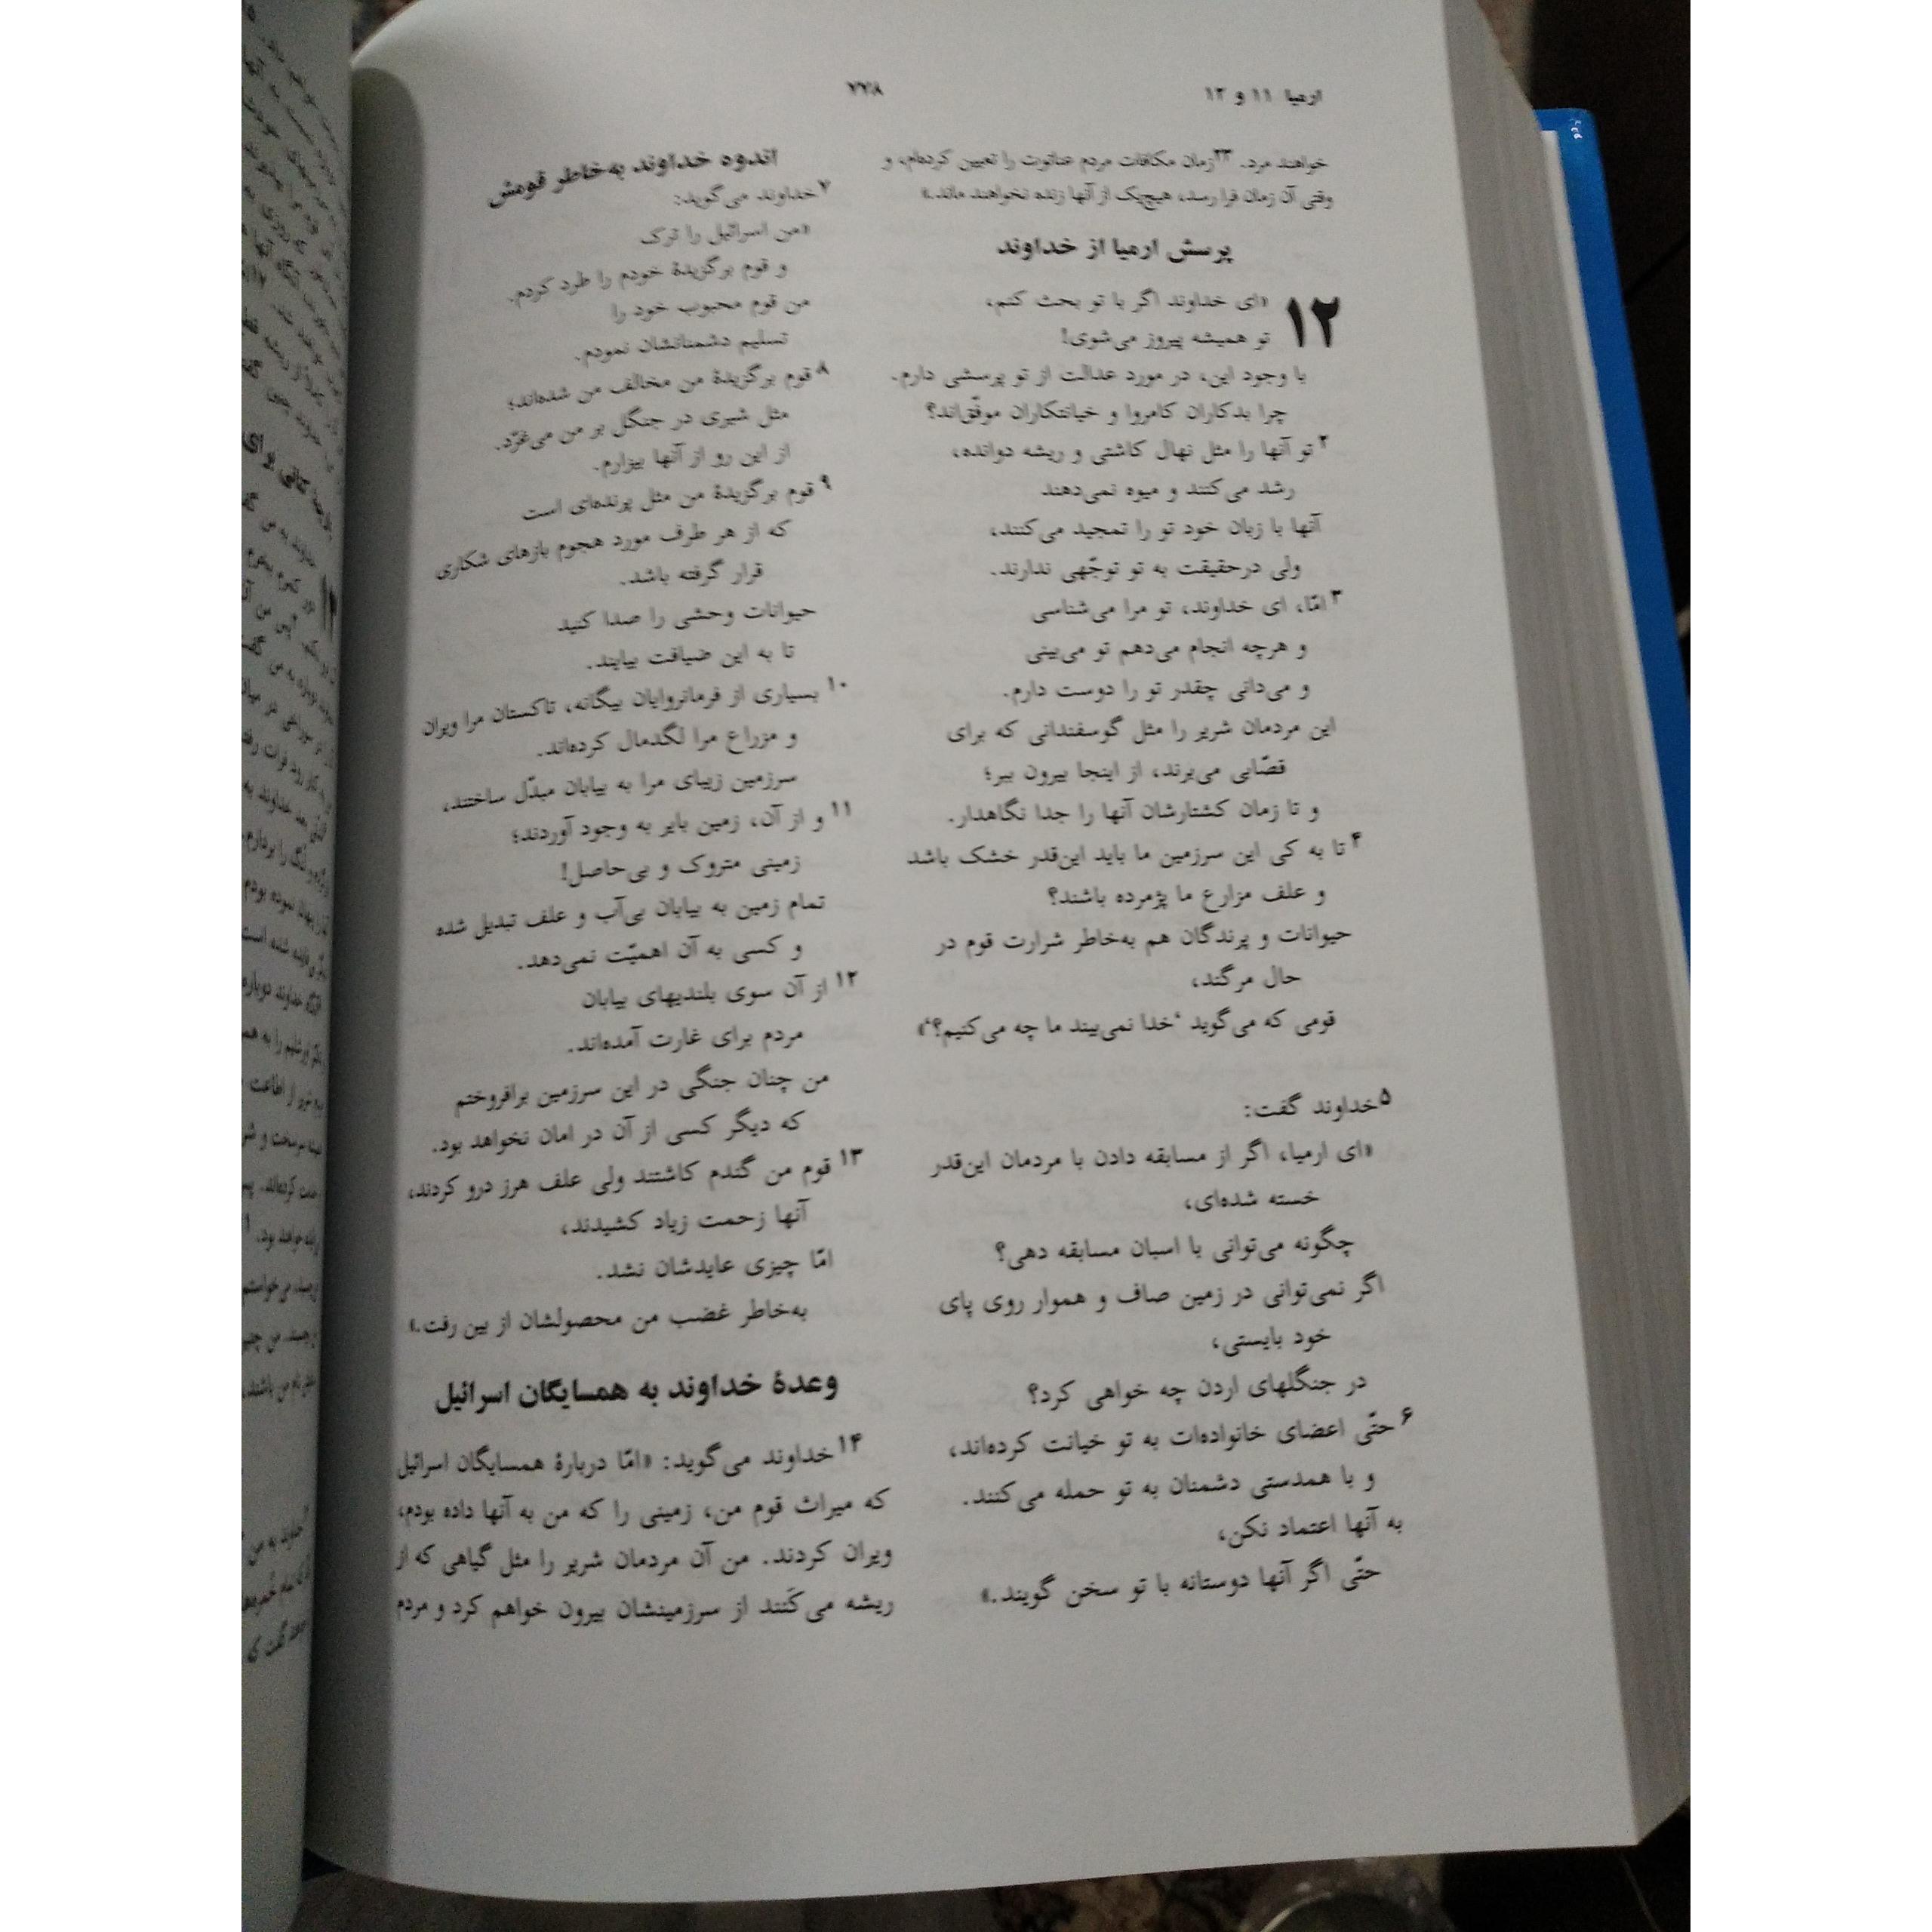 ارمیا ۱۱ و ۱۲
۷۲۸
خواهند مرد. ۲۳زمان مکافات مردم عناتوت را تعیین کرده‌ام، و
وقتی آن زمان فرا رسد، هیچ‌یک از آنها زنده نخواهند ماند.»
پرسش ارمیا از خداوند
۱۲ «ای خداوند اگر با تو بحث کنم،
تو همیشه پیروز می‌شوی!
با وجود این، در مورد عدالت از تو پرسشی دارم.
چرا بدکاران کامروا و خیانتکاران موفّق‌اند؟
۲ تو آنها را مثل نهال کاشتی و ریشه دوانده،
رشد می‌کنند و میوه نمی‌دهند
آنها با زبان خود تو را تمجید می‌کنند،
ولی درحقیقت به تو توجّهی ندارند.
۳ امّا، ای خداوند، تو مرا می‌شناسی
و هرچه انجام می‌دهم تو می‌بینی
و می‌دانی چقدر تو را دوست دارم.
این مردمان شریر را مثل گوسفندانی که برای
قصّابی می‌برند، از اینجا بیرون ببر؛
و تا زمان کشتارشان آنها را جدا نگاهدار.
۴ تا به کی این سرزمین ما باید این‌قدر خشک باشد
و علف مزارع ما پژمرده باشند؟
حیوانات و پرندگان هم به‌خاطر شرارت قوم در
حال مرگند،
قومی که می‌گوید ‘خدا نمی‌بیند ما چه می‌کنیم؟’»
۵خداوند گفت:
«ای ارمیا، اگر از مسابقه دادن با مردمان این‌قدر
خسته شده‌ای،
چگونه می‌توانی با اسبان مسابقه دهی؟
اگر نمی‌توانی در زمین صاف و هموار روی پای
خود بایستی،
در جنگلهای اردن چه خواهی کرد؟
۶ حتّی اعضای خانواده‌ات به تو خیانت کرده‌اند،
و با همدستی دشمنان به تو حمله می‌کنند.
به آنها اعتماد نکن،
حتّی اگر آنها دوستانه با تو سخن گویند.»
اندوه خداوند به‌خاطر قومش
۷خداوند می‌گوید:
«من اسرائیل را ترک
و قوم برگزیدهٔ خودم را طرد کردم.
من قوم محبوب خود را
تسلیم دشمنانشان نمودم.
۸ قوم برگزیدهٔ من مخالف من شده‌اند؛
مثل شیری در جنگل بر من می‌غرّد.
از این رو از آنها بیزارم.
۹ قوم برگزیدهٔ من مثل پرنده‌ای است
که از هر طرف مورد هجوم بازهای شکاری
قرار گرفته باشد.
حیوانات وحشی را صدا کنید
تا به این ضیافت بیایند.
۱۰ بسیاری از فرمانروایان بیگانه، تاکستان مرا ویران
و مزراع مرا لگدمال کرده‌اند.
سرزمین زیبای مرا به بیابان مبدّل ساختند،
۱۱ و از آن، زمین بایر به وجود آوردند؛
زمینی متروک و بی‌حاصل!
تمام زمین به بیابان بی‌آب و علف تبدیل شده
و کسی به آن اهمیّت نمی‌دهد.
۱۲ از آن سوی بلندیهای بیابان
مردم برای غارت آمده‌اند.
من چنان جنگی در این سرزمین برافروختم
که دیگر کسی از آن در امان نخواهد بود.
۱۳ قوم من گندم کاشتند ولی علف هرز درو کردند،
آنها زحمت زیاد کشیدند،
امّا چیزی عایدشان نشد.
به‌خاطر غضب من محصولشان از بین رفت.»
وعدهٔ خداوند به همسایگان اسرائیل
۱۴خداوند می‌گوید: «امّا دربارهٔ همسایگان اسرائیل
که میراث قوم من، زمینی را که من به آنها داده بودم،
ویران کردند. من آن مردمان شریر را مثل گیاهی که از
ریشه می‌کَنند از سرزمینشان بیرون خواهم کرد و مردم